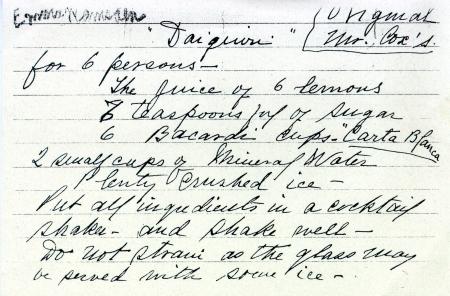 Original
"Daiquiri" Mr. Cox's.
for 6 persons —
The juice of 6 lemons
6 teaspoonsful of sugar
6 Bacardi cups - "Carta Blanca
2 small cups of Mineral Water
Plenty crushed ice —
Put all ingredients in a cocktail
shaker - and shake well —
Do not strain as the glass may
be served with some ice —.